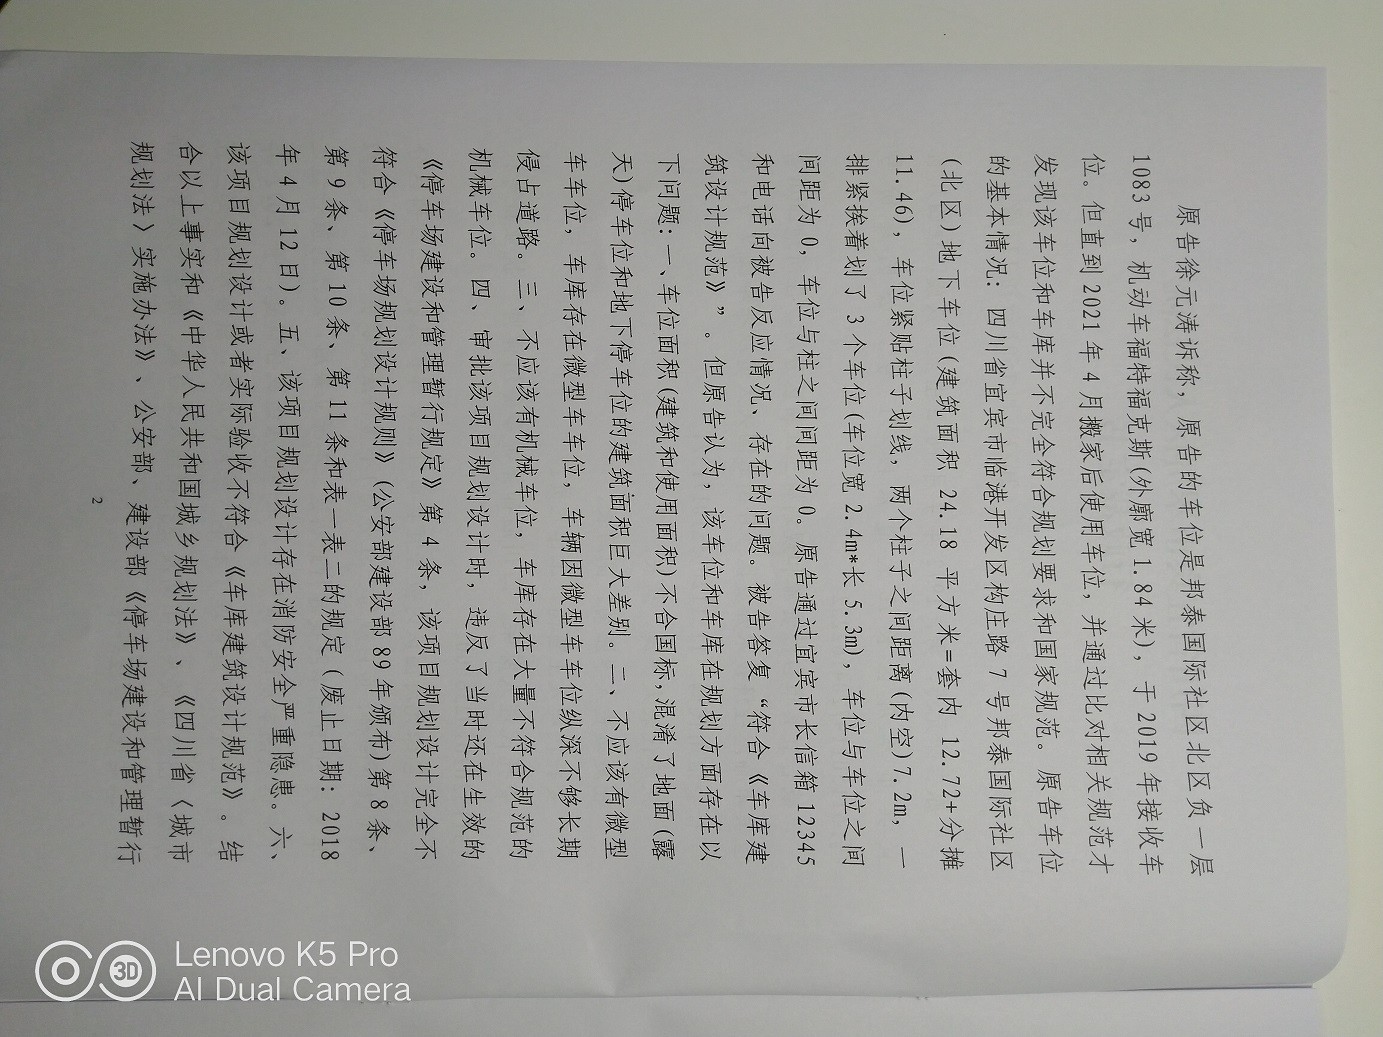 原告徐元涛诉称，原告的车位是邦泰国际社区北区负一层
1083号，机动车福特福克斯(外廓宽1.84米)，于2019年接收车
位。但直到2021年4月搬家后使用车位，并通过比对相关规范才
发现该车位和车库并不完全符合规划要求和国家规范。原告车位
的基本情况：四川省宜宾市临港开发区构庄路7号邦泰国际社区
(北区)地下车位(建筑面积 24.18 平方米=套内 12.72+分摊
11.46)，车位紧贴柱子划线，两个柱子之间距离(内空)7.2m，一
排紧挨着划了3个车位(车位宽2.4m*长5.3m)，车位与车位之间
间距为0，车位与柱之间间距为0。原告通过宜宾市长信箱12345
和电话向被告反应情况、存在的问题。被告答复“符合《车库建
筑设计规范》”。但原告认为，该车位和车库在规划方面存在以
下问题：一、车位面积(建筑和使用面积)不合国标,混淆了地面(露
天)停车位和地下停车位的建筑面积巨大差别。二、不应该有微型
车车位，车库存在微型车车位，车辆因微型车车位纵深不够长期
侵占道路。三、不应该有机械车位，车库存在大量不符合规范的
机械车位。四、审批该项目规划设计时，违反了当时还在生效的
《停车场建设和管理暂行规定》第4条，该项目规划设计完全不
符合《停车场规划设计规则》(公安部建设部89年颁布)第8条、
第9条、第10条、第11条和表一表二的规定（废止日期：2018
年4月12日)。五、该项目规划设计存在消防安全严重隐患。六、
该项目规划设计或者实际验收不符合《车库建筑设计规范》。结
合以上事实和《中华人民共和国城乡规划法》、《四川省〈城市
规划法〉实施办法》、公安部、建设部《停车场建设和管理暂行
2
Lenovo K5 Pro
AI Dual Camera
3D